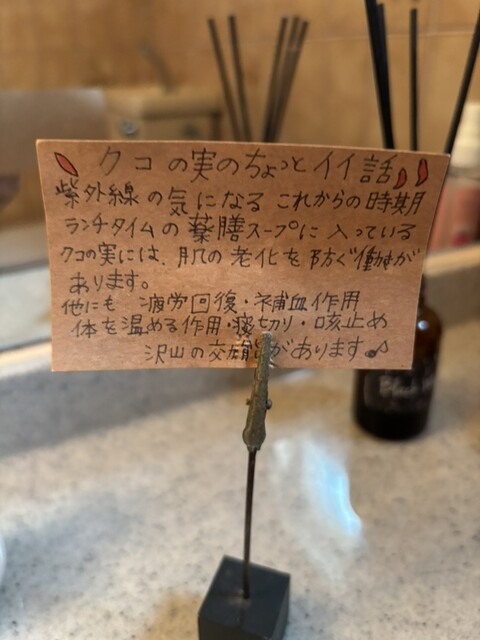 クコの実のちょっとイイ話
紫外線の気になるこれからの時期
ランチタイムの薬膳スープに入っている
クコの実には、肌の老化を防ぐ働きが
あります。
他にも 疲労回復・補血作用
体を温める作用・痰切り・咳止め
沢山の効能があります♪